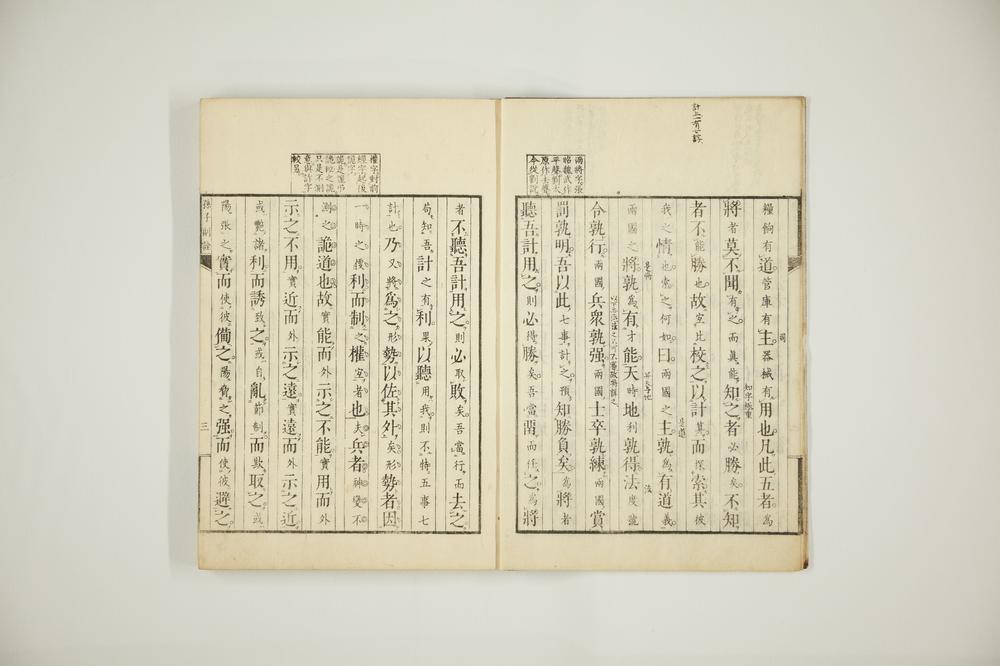 糧餉有道管庫有主器械有用也凡此五者為
將者莫不聞有之而真能知之者必勝矣不知
者不能勝也故宜比校之以計算而探索其彼
我之情也索之何如曰兩國之主孰為有道義
兩國之將孰為有才能天時地利孰得法度號
令孰行兩國兵衆孰强兩國士卒孰練兩國賞
罰孰明吾以此七事計之預知勝負矣為將者
聽吾計用之則必得勝矣吾當留而任之為將
者不聽吾計用之則必取敗矣吾當行而去之
苟知吾計之有利果以聽用我則不特五事七
計也乃又將為之形勢以佐其外矣形勢者因
一時之利而制之權宜者也夫兵者神變不
測之詭道也故實能而外示之不能實用而外
示之不用實近而外示之遠實遠而外示之近
或艷諸利而誘致之或自亂節制而欺取之或
陽張之實而使彼備之陽奮之强而使彼避之
孫子副詮
三
兩將字張
昭魏武作
平聲劉大
原作去聲
今從劉說
權字對前
經字起後
詭字
詭是詭
詭秘之詭
只是不測
意與詐字
較易
知字極重
是道
法